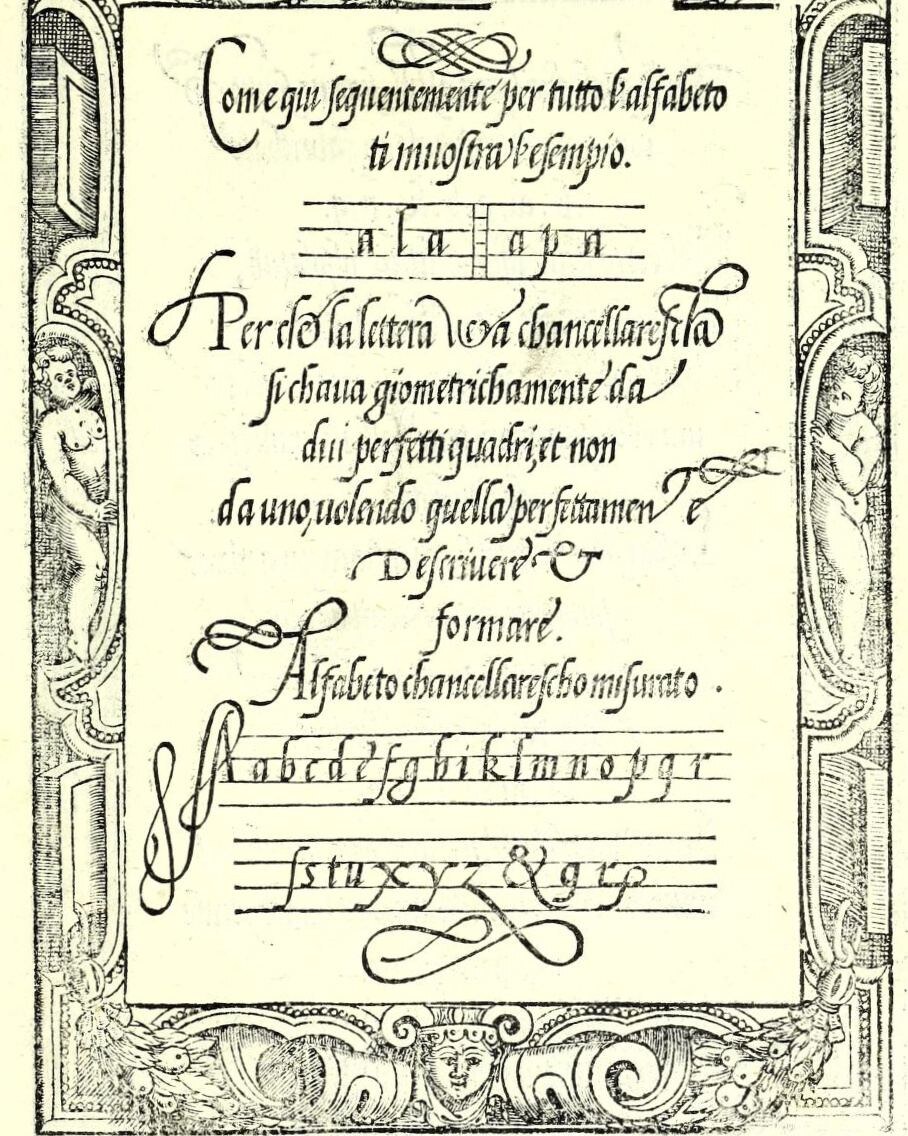 Come qui sequentemente per tutto l'alfabeto
ti muostra l'esempio.
a l a a p a
Per ciò la lettera chancellarescha
si chaua giometrichamente da
dui perfetti quadri, et non
da uno, uolendo quella perfettamente
Descriuere &
formare.
Alfabeto chancellarescho misurato .
A a b c d e f g h i k l m n o p q r
ſ s t u x y z & g